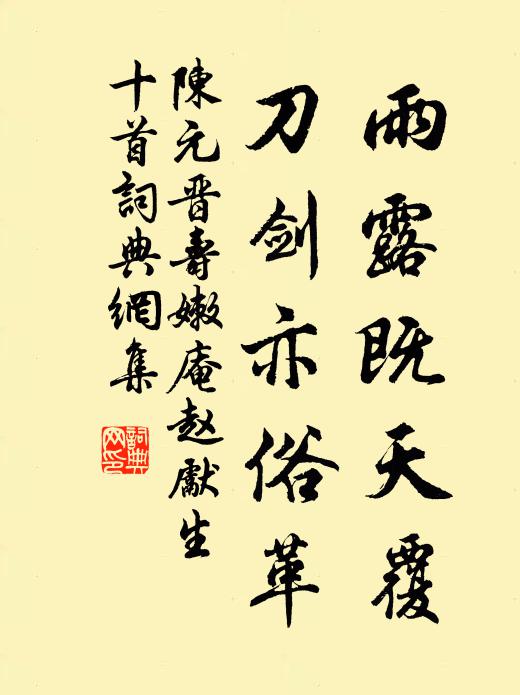 雨露既天覆
刀剑亦俗革
陳元晋壽嫩庵赵獻生
十首詞典網集
詞典网印